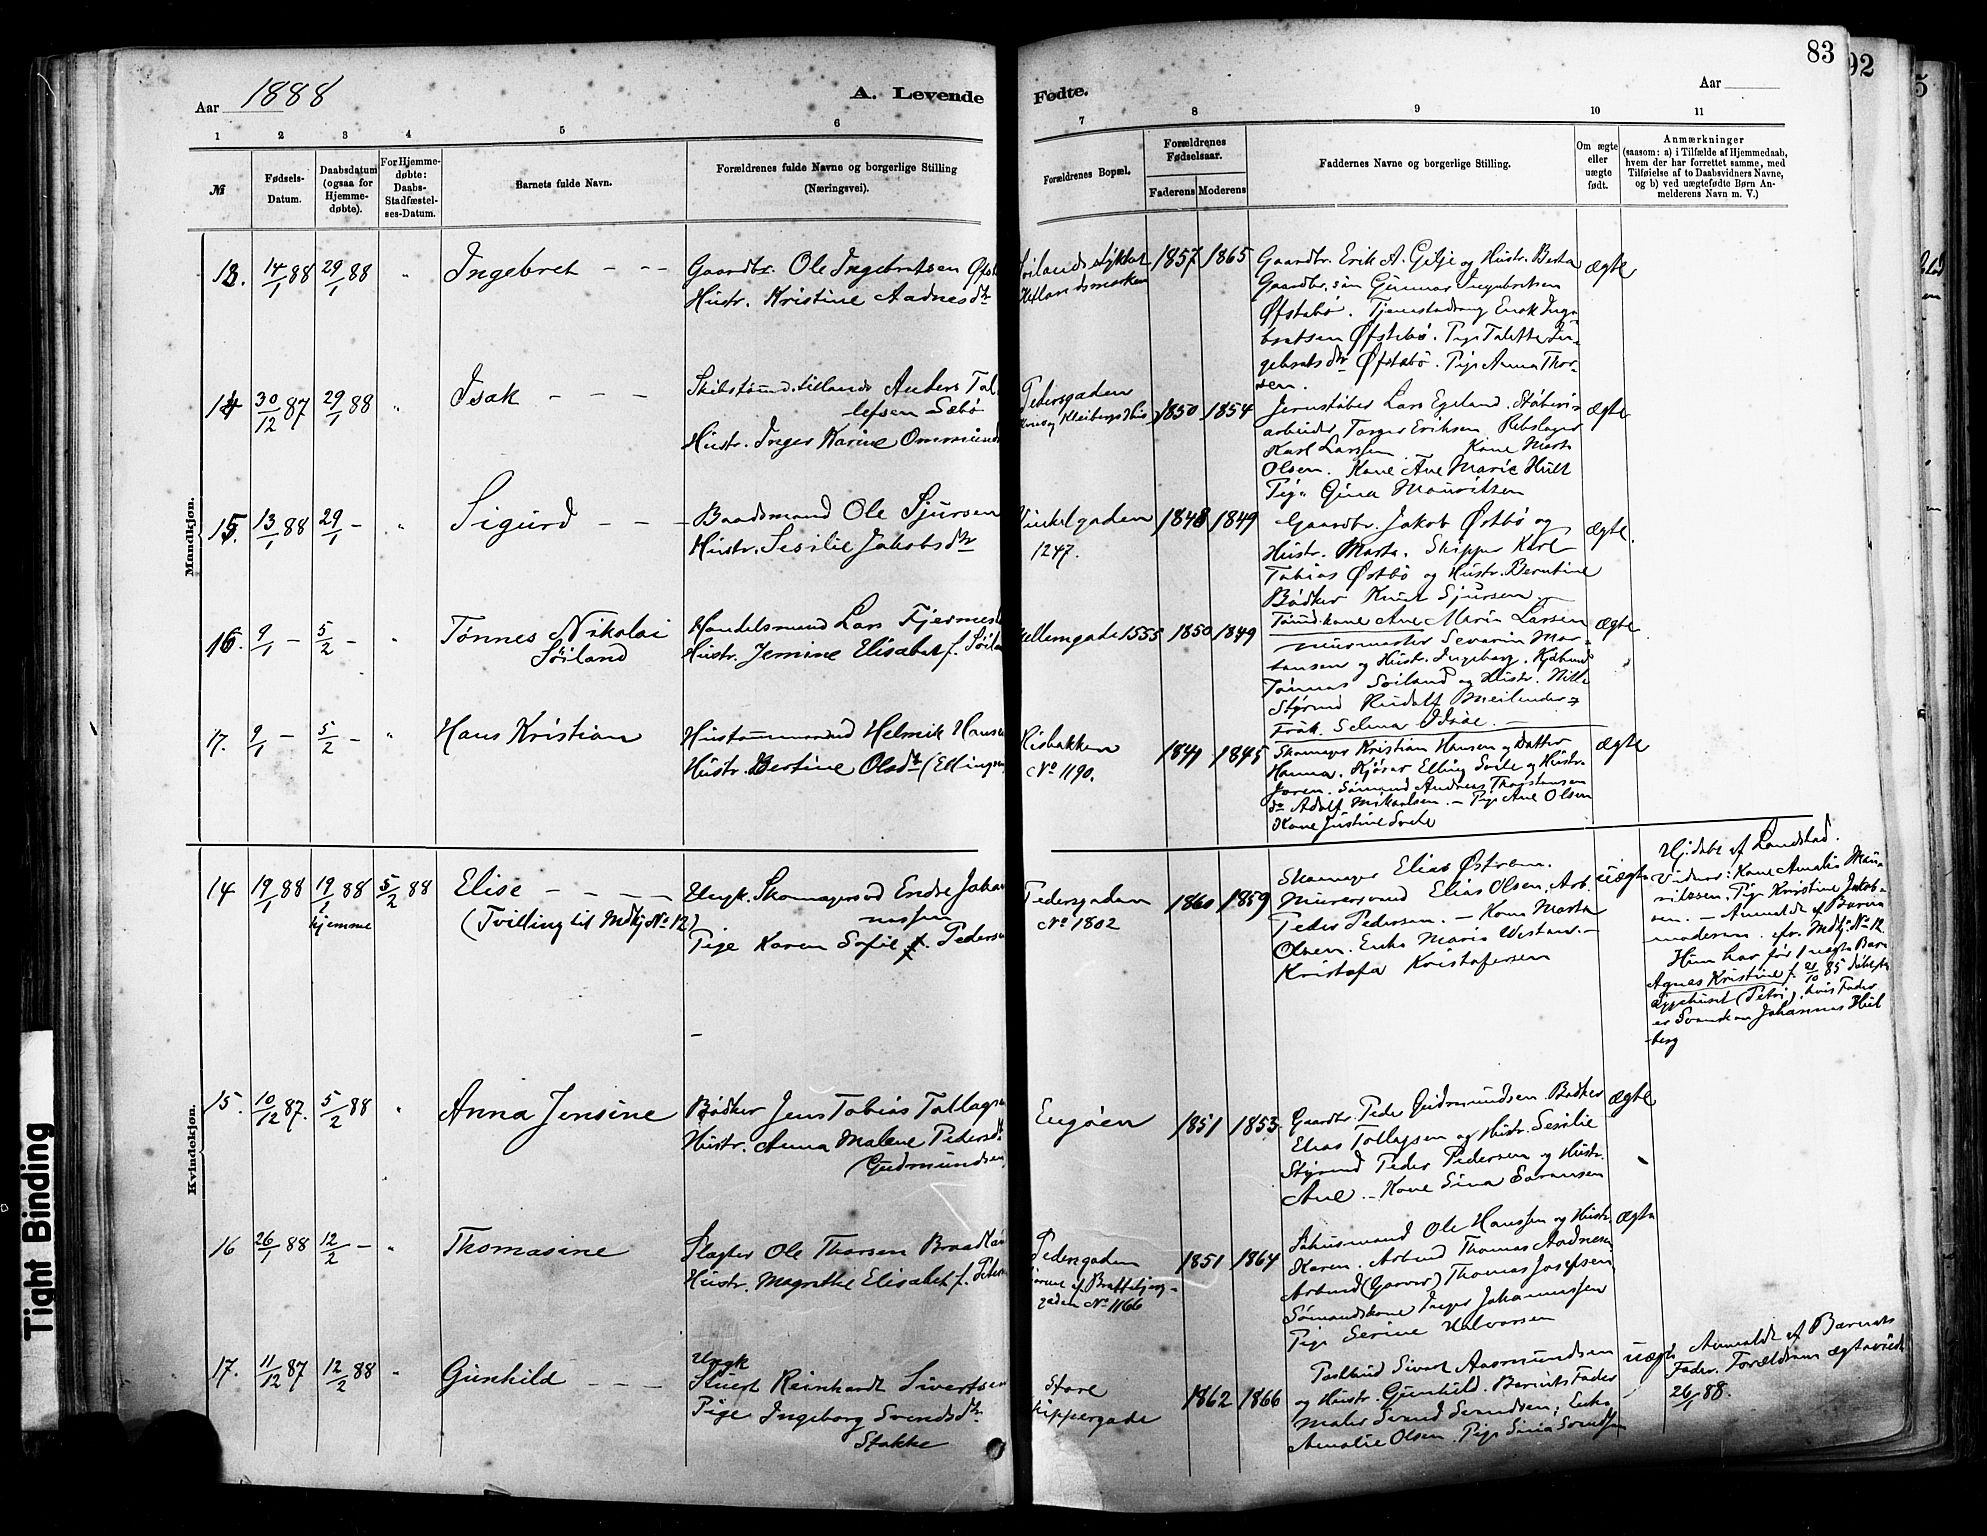 83
92
5
Aar 1888
A. Levende
Fødte.
Aar
1 2 3 4 5 6 7 8 9 10 11
№
Fødsels-
Datum.
Daabsdatum
(ogsaa for
Hjemme-
døbte):
For Hjemme-
døbte:
Daabs-
Stadfæstel-
ses-Datum.
Barnets fulde Navn.
Forældrenes fulde Navne og borgerlige Stilling
(Næringsvei).
Forældrenes Bopæl.
Forældrenes
Fødselsaar.
Faderens Moderens
Faddernes Navne og borgerlige Stilling.
Om ægte
eller
uægte
født.
Anmærkninger
(saasom: a) i Tilfælde af Hjemmedaab,
hvem der har forrettet samme, med
Tilføielse af to Daabsvidners Navne,
og b) ved uægtefødte Børn An-
melderens Navn m. V.)
Mandkjøn.
13. 14/1 88 29/1 88 " Ingebret
Gaardbr. Ole Ingebretsen Øfste
Hustr. Kristine Aadnesdtr
Hetlandsmarken
1857 1865
Gaardbr. Erik A. Gilje og Hustr. Berta
Gaardbr. søn Gunnar Ingebretsen
Øfstebø. Tjenestedreng Enok Inge
bretsen Øfstebø. Pige Talette In-
gebretsdtr Øfstebø. Pige Anna Thor-
sen.
ægte
14 30/12 87 29/1 88 " Isak
Skibstømmd. tillands Anders Tol
lefsen Sæbø
Hustr. Inger Karine Ommunds
Pedersgaden
1850 1854
Jernstøber Lars Egeland. Støberi-
arbeider Tarjer Eriksen. Rebslager
Karl Larssen. Kone Marta
Olsen. Kone Ane Marie Hult
Pige Gina Mauritzen
ægte
15. 13/1 88 29/1 - " Sigurd
Baadsmand Ole Sjursen
Hustr. Sesilie Jakobsdtr
Vinkelgaden
1247.
1848 1849
Gaardbr. Jakob Østbø og
Hustr. Marta. Skipper Karl
Tobias Østbø og Hustr. Berntine
Bødker Knut Sjursen
ægte.
16. 9/1 - 5/2 - " Tønnes Nikolai
Søiland
Handelsmand Lars Tjermes
Hustr. Jemine Elisabet f. Søila
ellemgade 1555
1850 1849
Tømd. kone Ane Marie Larsen
Murmester Severin Mor-
tensen og Hustr. Ingeborg. Kjøbmd
Tønnes Soiland og Hustr. Nille
Styrmd Rudolf Meilender
Frøk. Selma Idsøe.
ægte
17. 9/1 - 5/2 - " Hans Kristian
Hustømmermd Helmik Hanse
Hustr. Bertine Olsdtr (Ellings
Risbakken
No 1190.
1841 1845
Skomager Kristian Hansen og Datter
Hanna. Kjører Elling Svele og Hustr.
Joren. Sømand Andreas Thorstensen
do Adolf Mikaelsen. - Pige Ane Olsen
Kone Justine Svele
ægte
Kvindekjøn.
14 19/1 88 19/1 88 5/2 88 Elise
hjemme
(Tvilling til Mdkj No 12)
Ungk. Skomagersvd Endre Johan
nessen
Pige Karen Sofie f. Peders
Pedersgaden
No 1802
1860 1859
Skomager Elias Østrem.
Murersvend Elias Olsen. Arb.
Peder Pedersen. - Kone Marta
Olsen. Enke Maria Westand. -
Kristofa Kristofersen
uægte
Hj.døbt af Landstad.
Vidner: Kone Amalie Mau-
ritzsen, Pige Kristine Jakob-
sen. - Anmeldt af Barne
moderen. cfr. Mdkj. No 12
Hun har før 1 uægte Barn
Agnes Kristine f. 2/10 85 døbt
(Petri), hvis Fader
er Svensken Johannes Hul
berg
15. 10/12 87. 5/2 88 " Anna Jensine
Bødker Jens Tobias Tollags
Hustr. Anna Malene Pedersdt
(Gudmundsen
Engøen
1851 1853.
Gaardbr. Peder Gudmundsen Bødker
Elias Tollagsen og Hustr. Sesilie
Styrmd Peder Pedersen og Hustr.
Ane. - Kone Sina Sørensen
ægte
16 26/1 88 12/2 - " Thomasine
Slagter Ole Thorsen Braatla
Hustr. Magrethe Elisabet f. Peters
Pedersgaden
gaden No 1166
1851 1864
Ole Hanssen og Hustr.
Karen. Arbmd Thomas Aadnesen
Arbmd (Garver) Thomas Josefsen
Sømandskone Inger Johannessen
Pige Serine Halvorsen
ægte
17. 11/12 87 12/2 88 " Gunhild
Ungk
Stuert Reinhardt Sivertsen
Pige Ingeborg Svendsdtr
Stokke
Store
kippergade
1862 1866
Postbud Sivert Aasmundsen
og Hustr. Gunhild. Barnets Fader
Maler Svend Svendsen; Enke
Amalie Olsen. Pige Sina Svendsen
uægte
Anmeldt af Barnets
Fader. Forældrene ægteviede
26/1 88.
Tight Binding